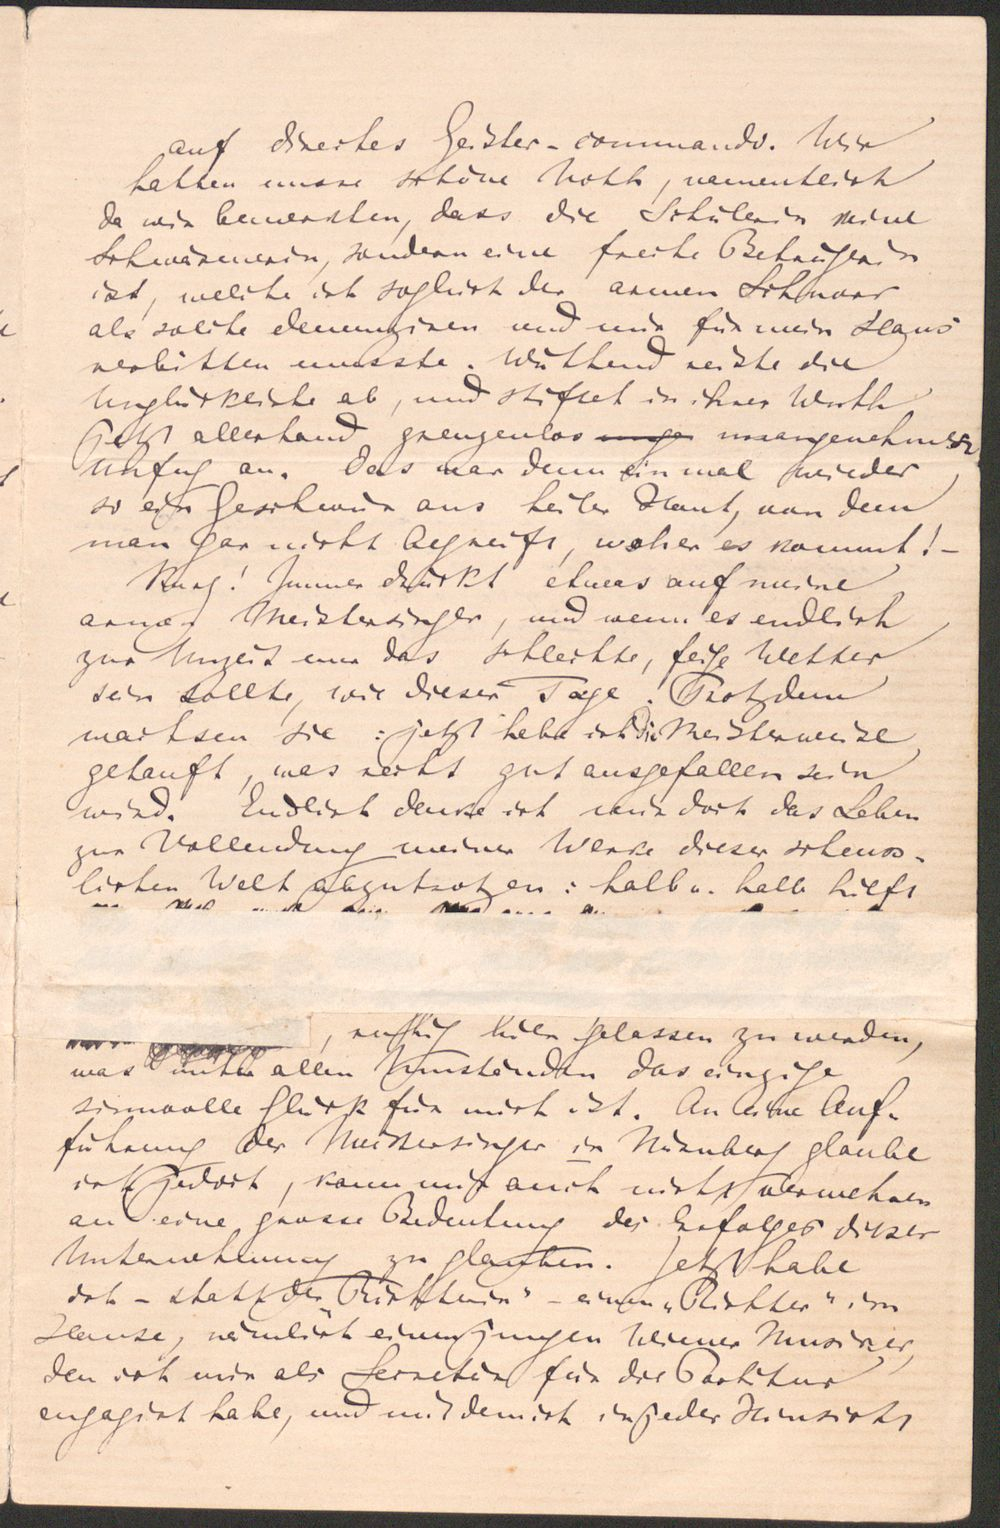 auf directes Geister-commando. Wir
hatten unsre schöne Noth, namentlich
da wir bemerkten, dass die Schülerin keine
Schwärmerin, sondern eine freche Betrügerin
ist, welche ich sogleich der armen Schnorr
als solche denunziren und mir für mein Haus
verbitten musste. Wüthend reiste die
Unglückliche ab, und stiftet in ihrer Wuth
jetzt allerhand grenzenlos unangenehmen
Unfug an. Das war denn einmal wieder
so ein Geschwür aus heiler Haut, von dem
man gar nicht begreift, woher es kommt! –
Kurz! Immer drückt etwas auf meine
armen Meistersinger, und wenn es endlich
zur Unzeit nur das schlechte, feige Wetter
sein sollte, wie dieser Tage. Trotzdem
wachsen sie: jetzt habe ich die Meisterweise
getauft, was recht gut ausgefallen sein
wird. Endlich denke ich mir doch das Leben
zur Vollendung meiner Werke dieser scheuss-
lichen Welt abzutrotzen: halb u. halb hilft
, ruhig hier gelassen zu werden,
was unter allen Umständen das einzige
sinnvolle Glück für mich ist. An eine Auf-
führung der Meistersinger in Nürnberg glaube
ich jedoch, kann mir auch nicht verwehren
an eine grosse Bedeutung des Erfolges dieser
Unternehmung zu glauben. Jetzt habe
ich – statt der "Richterin" – einen "Richter" im
Hause, nämlich einen jungen Wiener Musiker,
den ich mir als Secretär für die Partitur
engagirt habe, und mit dem ich in jeder Hinsicht